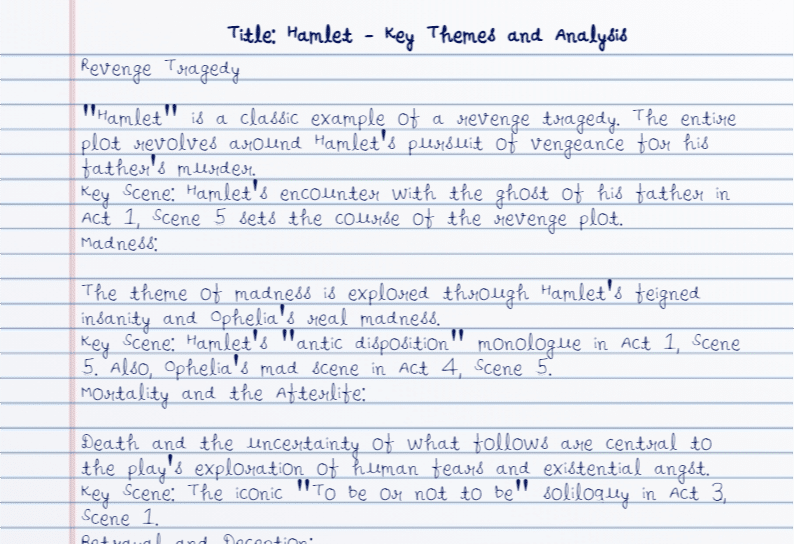 Title: Hamlet - Key Themes and Analysis
Revenge Tragedy
"Hamlet" is a classic example of a revenge tragedy. The entire
plot revolves around Hamlet's pursuit of vengeance for his
father's murder.
Key Scene: Hamlet's encounter with the ghost of his father in
Act 1, Scene 5 sets the course of the revenge plot.
Madness:
The theme of madness is explored through Hamlet's feigned
insanity and Ophelia's real madness.
Key Scene: Hamlet's "antic disposition" monologue in Act 1, Scene
5. Also, Ophelia's mad scene in Act 4, Scene 5.
Mortality and the Afterlife:
Death and the uncertainty of what follows are central to
the play's exploration of human fears and existential angst.
Key Scene: The iconic "To be or not to be" soliloquy in Act 3,
Scene 1.
Betrayal and Deception: